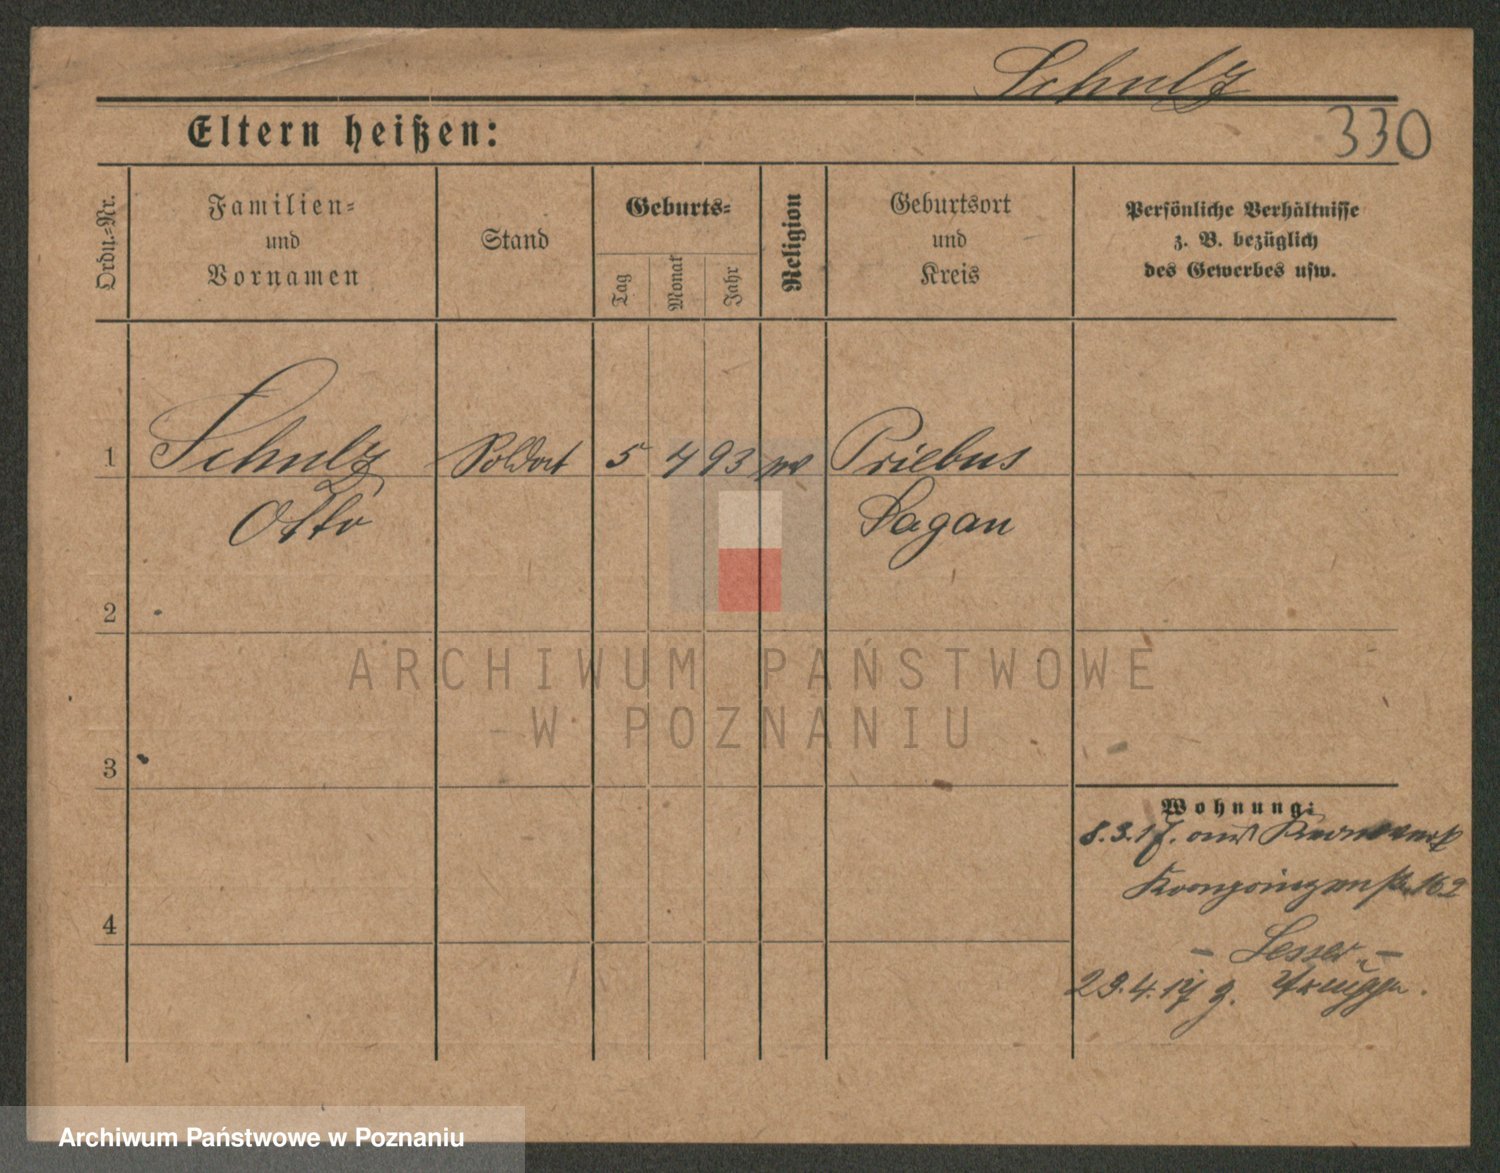 Schulz
330
Eltern heißen:
Ordn.-Nr.
Familien-
und
Vornamen
Stand
Geburts-
Tag
Monat
Jahr
Religion
Geburtsort
und
Kreis
Persönliche Verhältnisse
z. B. bezüglich
des Gewerbes usw.
1 Schulz Soldat 5 4 93 Priebus
Otto Sagan
2
3
4
Wohnung:
8.3.17. aus
162
- Lesser -
29.4.17 z.
ARCHIWUM PAŃSTWOWE
W POZNANIU
Archiwum Państwowe w Poznaniu